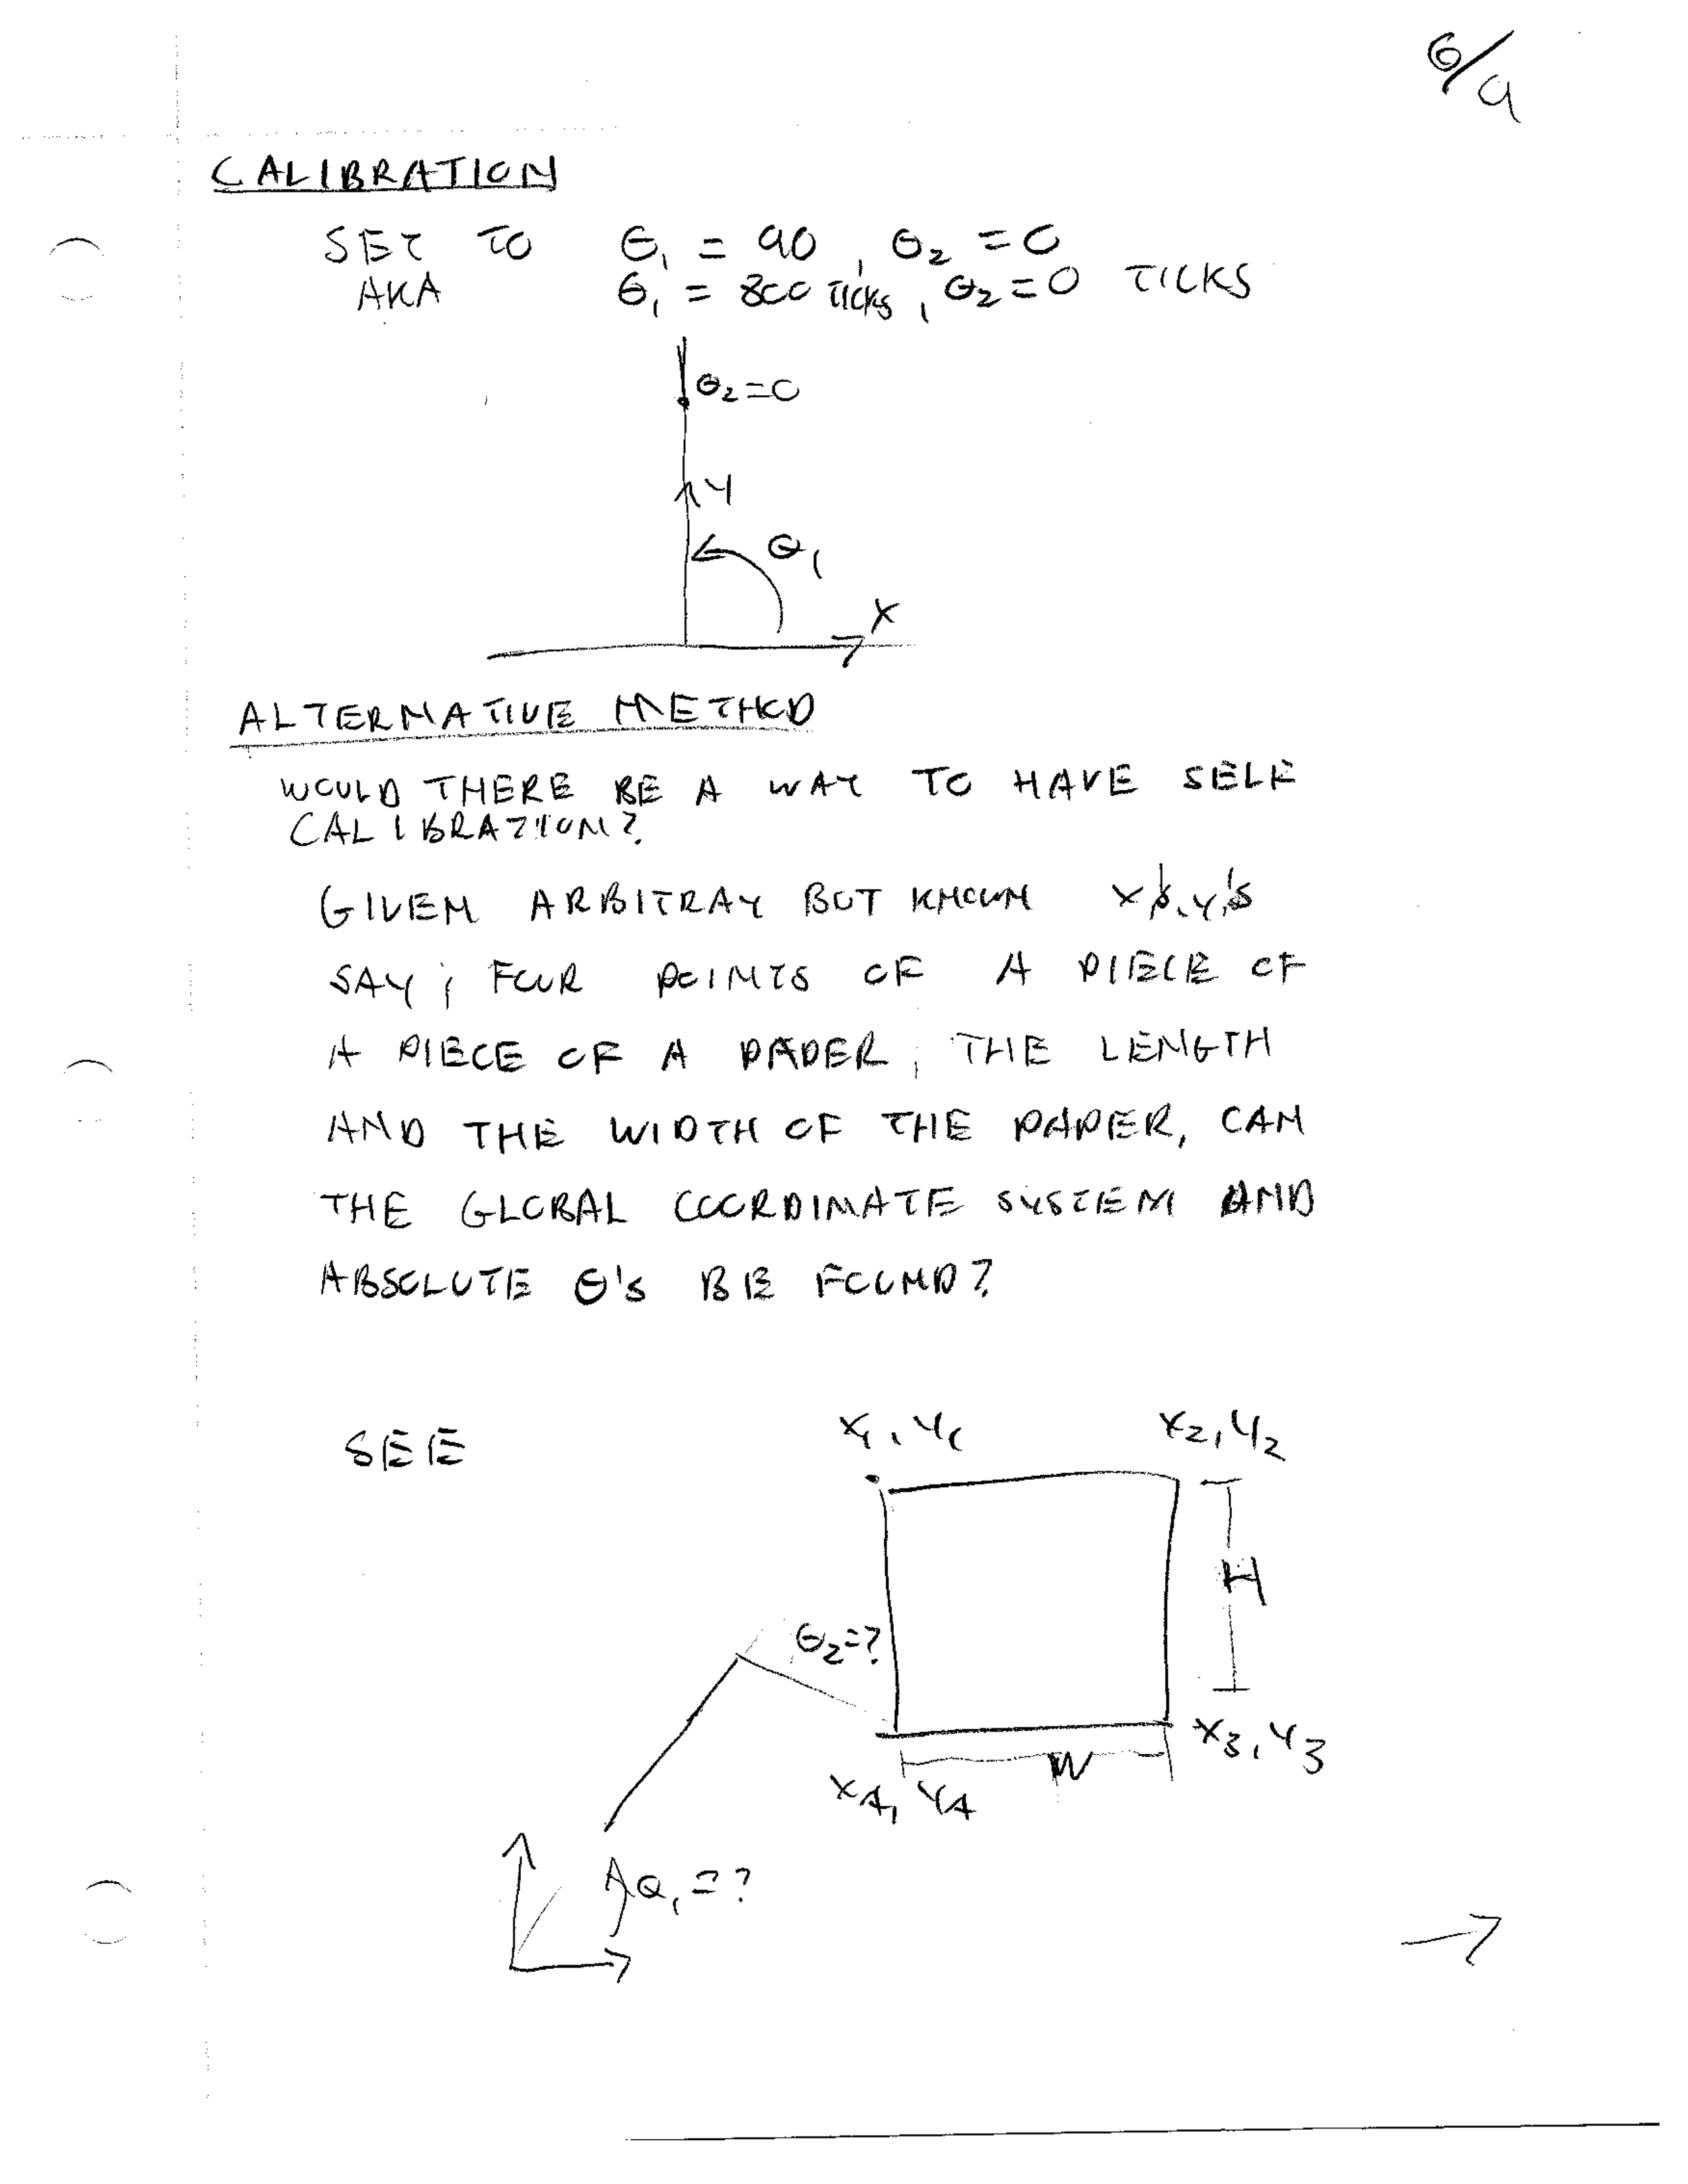 6/9
CALIBRATION
SET TO θ₁ = 90, θ₂ = 0
AKA θ₁ = 800 TICKS, θ₂ = 0 TICKS
θ₂ = 0
Y
θ₁
X
ALTERNATIVE METHOD
WOULD THERE BE A WAY TO HAVE SELF
CALIBRATION?
GIVEN ARBITRAY BUT KNOWN X's, Y's
SAY, FOUR POINTS OF A PIECE OF
A PIECE OF A PAPER, THE LENGTH
AND THE WIDTH OF THE PAPER, CAN
THE GLOBAL COORDINATE SYSTEM AND
ABSOLUTE θ's BE FOUND?
SEE
X₁, Y₁ X₂, Y₂
H
θ₂=?
X₃, Y₃
W
X₄, Y₄
θ₁ = ?